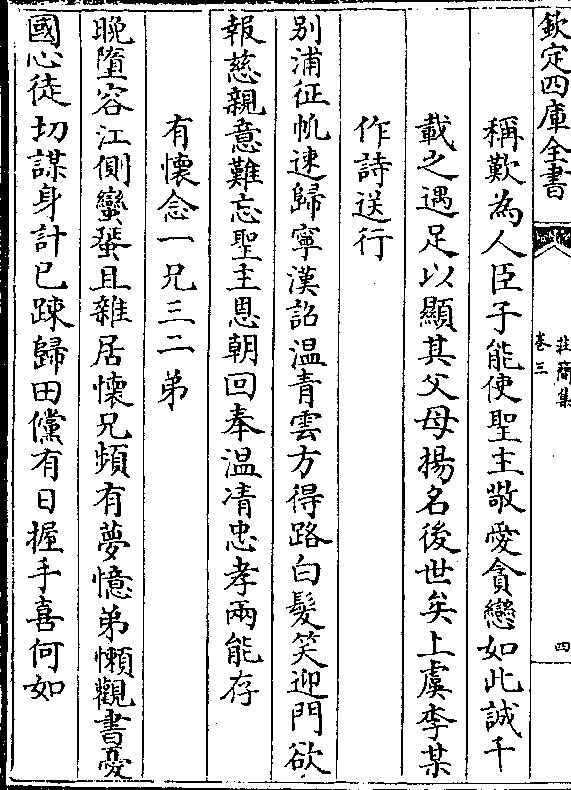 欽定四庫全書
莊簡集
卷三
四
稱歎為人臣子能使聖主敬愛貪戀如此誠千
載之遇足以顯其父母揚名後世矣上虞李某
作詩送行
別浦征帆速歸寧漢詔溫青雲方得路白髮笑迎門欲
報慈親意難忘聖主恩朝回奉温凊忠孝兩能存
有懷念一兄三二弟
晚墮容江側蠻蜑且雜居懷兄頻有夢憶弟懶觀書憂
國心徒切謀身計已踈歸田儻有日握手喜何如